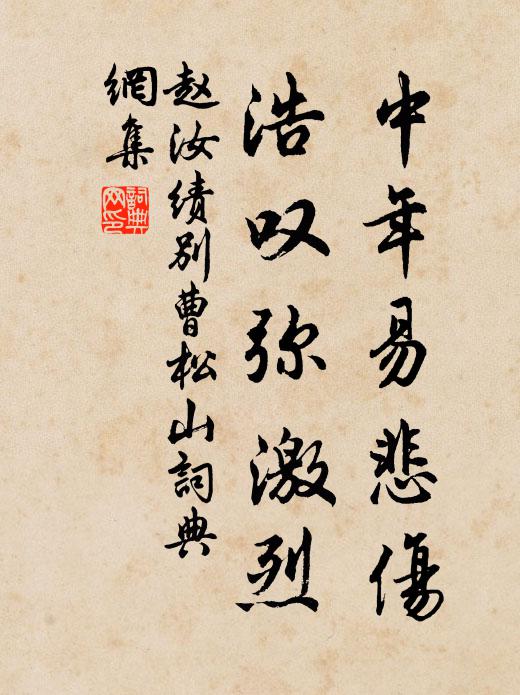 中年易悲傷
浩叹弥激烈
赵汝绩别曹松山詞典
網集
詞典
网印